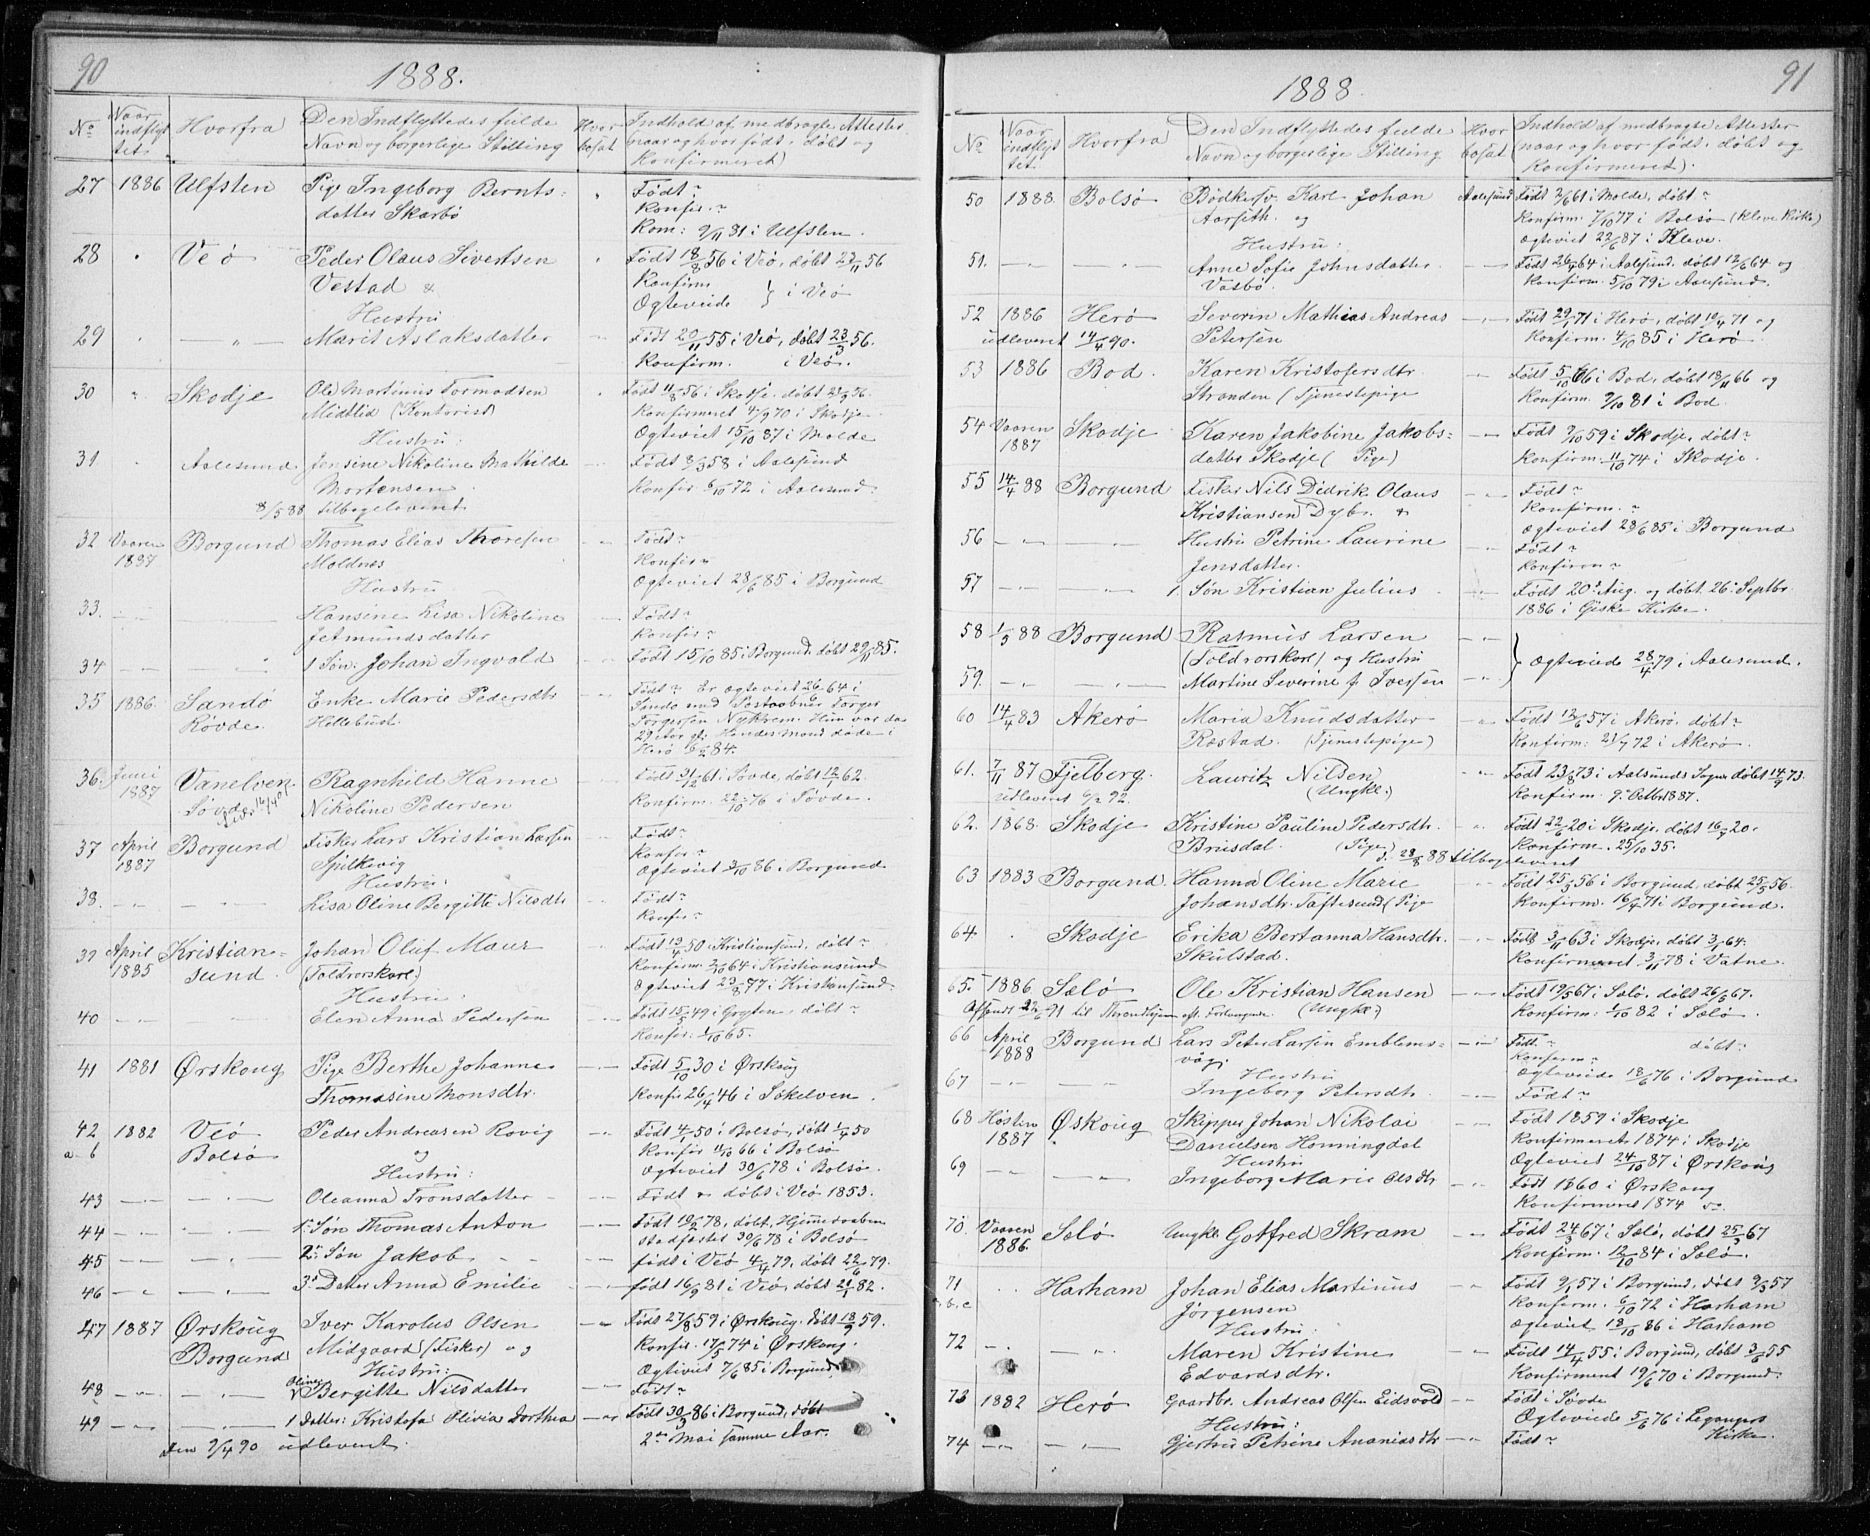 90
1888.
No
Naar indflyttet.
Hvorfra
Den Indflyttedes fulde Navn og borgerlige Stilling
Hvor bosat
Indhold af medbragte Attester (naar og hvor født, døbt og Konfirmeret)
27 1886 Ulfsten Pige Ingeborg Bernts- Født?
datter Skarbø Konfir.?
Kom: 9/11 81 i Ulfsten.
28 " Veø Peder Olaus Sivertsen Født 18/8 56 i Veø, døbt 23/11 56
Vestad & Konfirm
Hustru Ogteviede } i Veø
29 Marit Aslaksdatter Født 20/11 55 i Veø, døbt 23/3 56.
Konfirm. i Veø.
30 " Skodje Ole Martinus Tormodsen Født 11/8 56 i Skodje, døbt
Midtlid (Kontorist) Konfirmeret 4/9 70 i Skodje
Hustru: Ogteviet 15/10 87 i Molde
31 Aalesund Jensine Nikoline Mathilde Født 8/3 58 i Aalesund
Mortensen Konfir 6/10 72 i Aalesund.
8/5 88 tilbageleveret
32 Vaaren Borgund Thomas Elias Thoresen Født?
1887 Moldnæs Konfir?
Hustru Ogteviet 28/6 85 i Borgund
33. Hansine Lisa Nikoline Født?
Jetmundsdatter Konfir?
34 1 Søn: Johan Ingvold Født 15/10 85 i Borgund, døbt 29/11 85.
35 1886. Sandø Enke Marie Pedersdtr Født? Er ogteviet 26/6 64 i
Røvde. Hellebust Sandø med Postaabner Torger
Torgersen Nykrem. Hun var da
29 Aar gl. Hendes Mand døde i
Herø 84.
36. Juni Vanelven Ragnhild Hanne Født 31/12 61 i Søvde, døbt 12/1 62.
1887 Søvde Nikoline Pedersen Konfirm. 22/10 76 i Søvde.
37 April Borgund Fisker Lars Kristian Larsen Født?
1887 Spilkevig Konfir?
Hustru: Ogteviet 3/10 86 i Borgund
38. Lisa Oline Bergitte Nilsdtr Født?
Konfir?
39 April Kristian- Johan Oluf Maur Født 13/4 50 i Kristiansund, døbt?
1885 sund. (Toldrorskarl) Konfirm. 2/10 64 i Kristiansund
Hustru: Ogteviet 23/8 77 i Kristiansund.
40 Elen Anna Pedersen Født 15/5 49 i Gryten, døbt?
Konfir: 1/10 65.
41 1881 Ørskoug Pige Berthe Johanne Født 5/10 30 i Ørskoug
Thomasine Monsdtr. Konfir 26/4 46 i Søkelven.
42 1882 Veø Peder Andreasen Rovig Født 4/1 50 i Bolsø, døbt 1/4 50
a-b Bolsø og Konfir 11/10 66 i Bolsø
Hustru: Ogteviet 30/6 78 i Bolsø.
43 Oleanna Tronsdatter Født & døbt i Veø 1853.
44 1. Søn Thomas Anton Født 19/2 78, døbt, Hjemmedaaben
stadfæstet 30/6 78 i Bolsø
45 2. Søn Jakob født i Veø 4/4 79, døbt 22/6 79.
46 3. Datter Anna Emilie født 16/9 81 i Veø, døbt 21/1 82.
47 1887 Ørskoug Iver Karolus Olsen Født 27/8 59 i Ørskoug, døbt 18/9 59.
Borgund Midgaard (Fisker) og Konfir. 17/5 74 i Ørskoug.
Hustru: Ogteviet 7/6 85 i Borgund.
48 Oline Bergitte Nilsdatter Født?
49 1 Datter: Kristofa Olivia Dorthea Født 30/3 86 i Borgund, døbt
Den 9/4 90 udleveret. 2den Mai samme Aar.
91
1888.
No
Naar indflyttet.
Hvorfra
Den Indflyttedes fulde Navn og borgerlige Stilling
Hvor bosat
Indhold af medbragte Attester (naar og hvor født, døbt og Konfirmeret).
50 1888. Bolsø Bødkersv. Karl Johan Aalesund Født 2/6 61 i Molde, døbt?
Aarseth. og Konfirm. 7/10 77 i Bolsø (Kleve Kirke)
Hustru: Ogteviet 22/6 87 i Kleve.
51. Anne Sofie Johnsdatter Født 26/4 64 i Aalesund, døbt 12/6 64 og
Vasbø. Konfirm. 5/10 79 i Aalesund.
52 1886 Herø Severin Mathias Andreas Født 29/1 71 i Herø, døbt 10/4 71 og
udleveret 14/4 90. Petersen Konfirm. 4/10 85 i Herø.
53 1886 Bod. Karen Kristofersdtr Født 5/10 66 i Bod, døbt 18/11 66 og
Stranden (Tjenestepige Konfirm. 9/10 81 i Bod.
54 Vaaren Skodje Karen Jakobine Jakobs- Født 7/10 59 i Skodje, døbt?
1887 datter Skodje (Pige) Konfirm. 11/10 74 i Skodje.
55 14/4 88 Borgund Fisker Nils Didrik Olaus Født?
Kristiansen Dyb. & Konfirm. ?
Ogteviet 28/6 85 i Borgund
56 Hustru Petrine Laurine Født?
Jensdatter. Konfirm?
57 1. Søn Kristian Julius Født 20de Aug. og døbt 26. Septbr.
1886 i Giske Kirke.
58 1/5 88 Borgund Rasmus Larsen
(Toldrorskarl) og Hustru } Ogteviede 28/4 79 i Aalesund.
59. Martine Severine f. Iversen
60 14/4 83 Akerø Maria Knudsdatter Født 13/6 57 i Akerø, døbt?
Røstad. (Tjenestepige) Konfirm: 21/7 72 i Akerø.
61. 7/11 87 Fjelberg. Lauritz Nilsen Født 23/8 73 i Aalsunds Sogn døbt 14/9 73.
Udleveret 6/2 92. (Ungkl.) Konfirm. 9. Octbr 1887.
62. 1868. Skodje Kristine Pauline Pedersdtr. Født 22/6 20 i Skodje, døbt 16/7 20.
Brusdal. (Pige) Konfirm. 25/10 35.
d. 28/8 88 tilbageleveret
63 1883 Borgund. Hanna Oline Marie Født 25/3 56 i Borgund, døbt 25/5 56.
Johansdtr. Taftesund (Pige Konfirm. 16/4 71 i Borgund.
64. Skodje Erika Bertanna Hansdtr. Født 3/11 63 i Skodje, døbt 3/1 64.
Skulstad. Konfirmeret 3/11 78 i Vatne.
65. 1886 Sølø Ole Kristian Hansen Født 19/5 67 i Sølø, døbt 26/5 67.
Afsendt 22/6 91 til Throndhjem eft. Forlangende. (Ungkl.) Konfirm. 1/10 82 i Sølø.
66 April Borgund Lars Peter Larsen Emblems- Født. ? døbt?
1888 våg. Konfirm?
Hustru Ogteviede 18/6 76 i Borgund
67 Ingeborg Petersdtr. Født?
68 Høsten Øskoug Skipper Johan Nikolai Født 1859 i Skodje
1887 Danielsen Honningdal Konfirmeret 1874 i Skodje
Hustru Ogteviet 24/10 87 i Ørskoug
69 Ingeborg Marie Olsdtr Født 1860 i Ørskoug
Konfirmeret 1874 do.
70. Vaaren Sølø Ungkl. Gotfred Skram Født 24/3 67 i Sølø, døbt 25/3 67
1886. Konfirm. 12/10 84 i Sølø.
71 Harham Johan Elias Martinus Født 9/1 57 i Borgund, døbt 9/3 57
a, b, c Jørgensen Konfirm. 6/10 72 i Harham
Hustru: Ogteviet 13/10 86 i Harham
72 Maren Kristine Født 14/4 55 i Borgund, døbt 3/6 55
Edvardsdtr. Konfirmeret 19/6 70 i Borgund.
73 1882 Herø Gaardbr. Andreas Olsen Eidsvold Født i Søvde
Hustru: Ogteviede 5/6 76 i Leganger
74 Gjertru Petrine Ananiasdtr Født? Kirke.